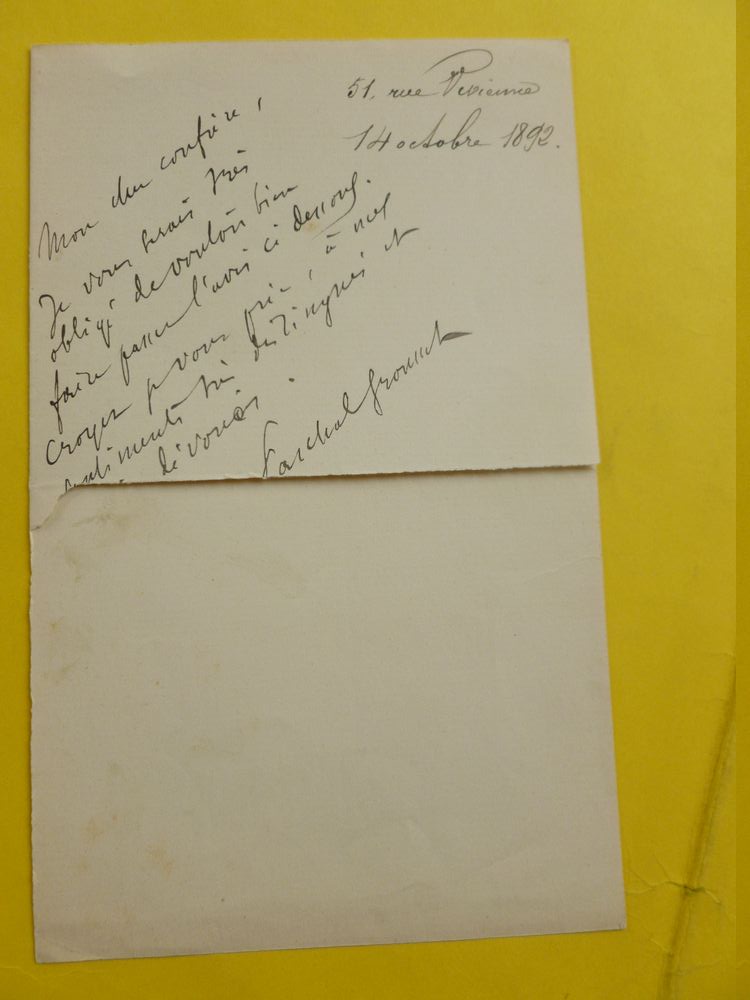 51, rue Vivienne
14 octobre 1892.
Mon cher confrère,
Je vous serais très
obligé de vouloir bien
faire passer l'avis ci dessous.
Croyez je vous prie, à mes
sentiments très distingués et
dévoués.
Paschal Grousset